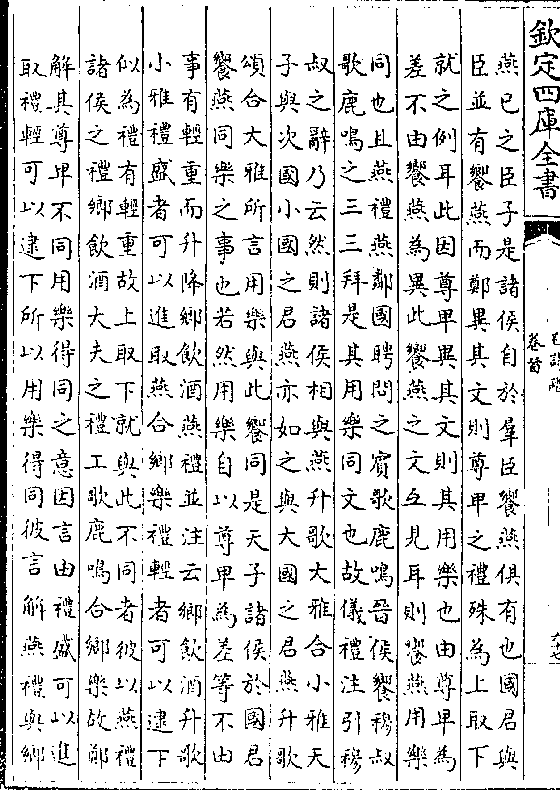 欽定四庫全書
卷首
燕已之臣子是諸侯自於羣臣饗燕俱有也國君與
臣並有饗燕而鄭異其文則尊卑之禮殊為上取下
就之例耳此因尊卑異其文則其用樂也由尊卑為
差不由饗燕為異此饗燕之文互見耳則饗燕用樂
同也且燕禮燕鄰國聘問之賓歌鹿鳴晉侯饗穆叔
歌鹿鳴之三三拜是其用樂同文也故儀禮注引穆
叔之辭乃云然則諸侯相與燕升歌大雅合小雅天
子與次國小國之君燕亦如之與大國之君燕升歌
頌合大雅所言用樂與此饗同是天子諸侯於國君
饗燕同樂之事也若然用樂自以尊卑為差等不由
事有輕重而升降鄉飲酒燕禮並注云鄉飲酒升歌
小雅禮盛者可以進取燕合鄉樂禮輕者可以逮下
似為禮有輕重故上取下就與此不同者彼以燕禮
諸侯之禮鄉飲酒大夫之禮工歌鹿鳴合鄉樂故鄭
解其尊卑不同用樂得同之意因言由禮盛可以進
取禮輕可以逮下所以用樂得同彼言解燕禮與鄉